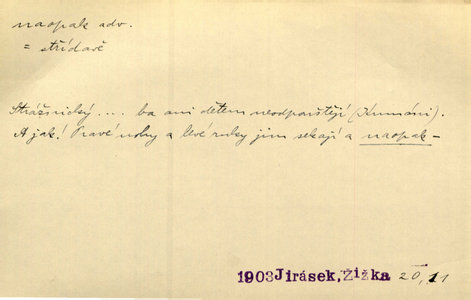 naopak adv.
= střídavě
Strážnický .... ba ani dětem neodpouštějí (Kumáni).
A jak! Pravé nohy a levé ruky jim sekají a naopak –
1903 Jirásek, Žižka 20, 11